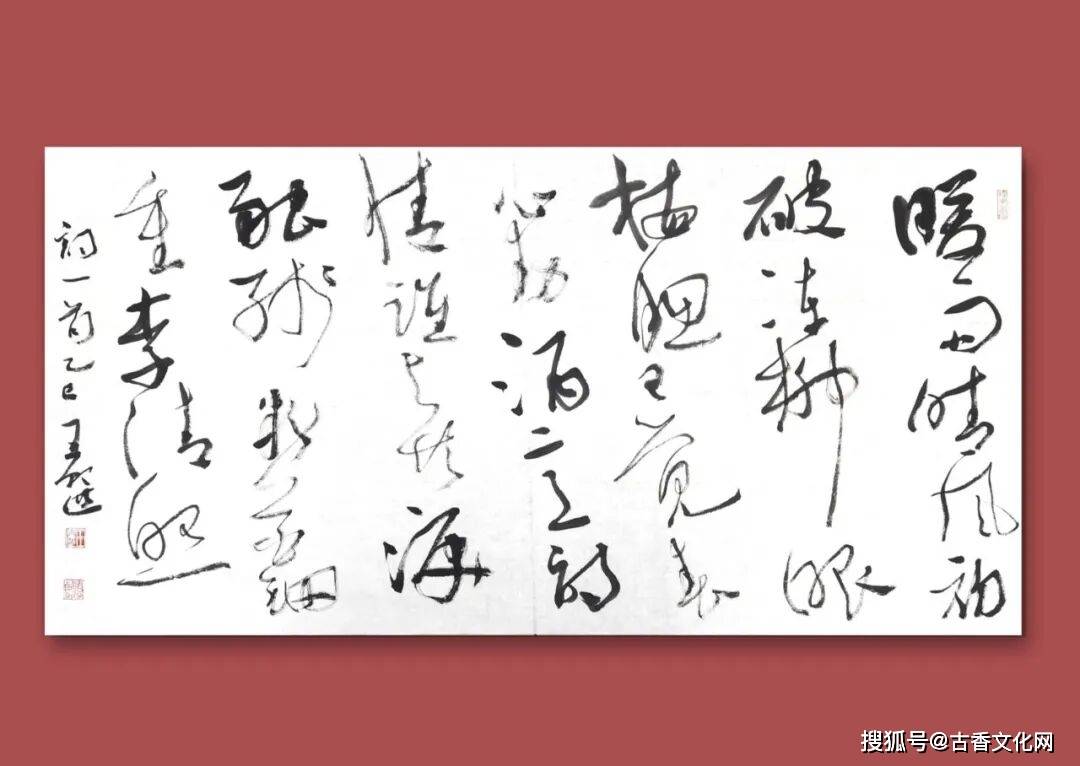 暖雨晴风初
破冻柳眼
梅腮已觉春
心动酒意诗
情谁与共泪
融残粉花钿
重李清照
词一首乙巳王
搜狐号@古香文化网